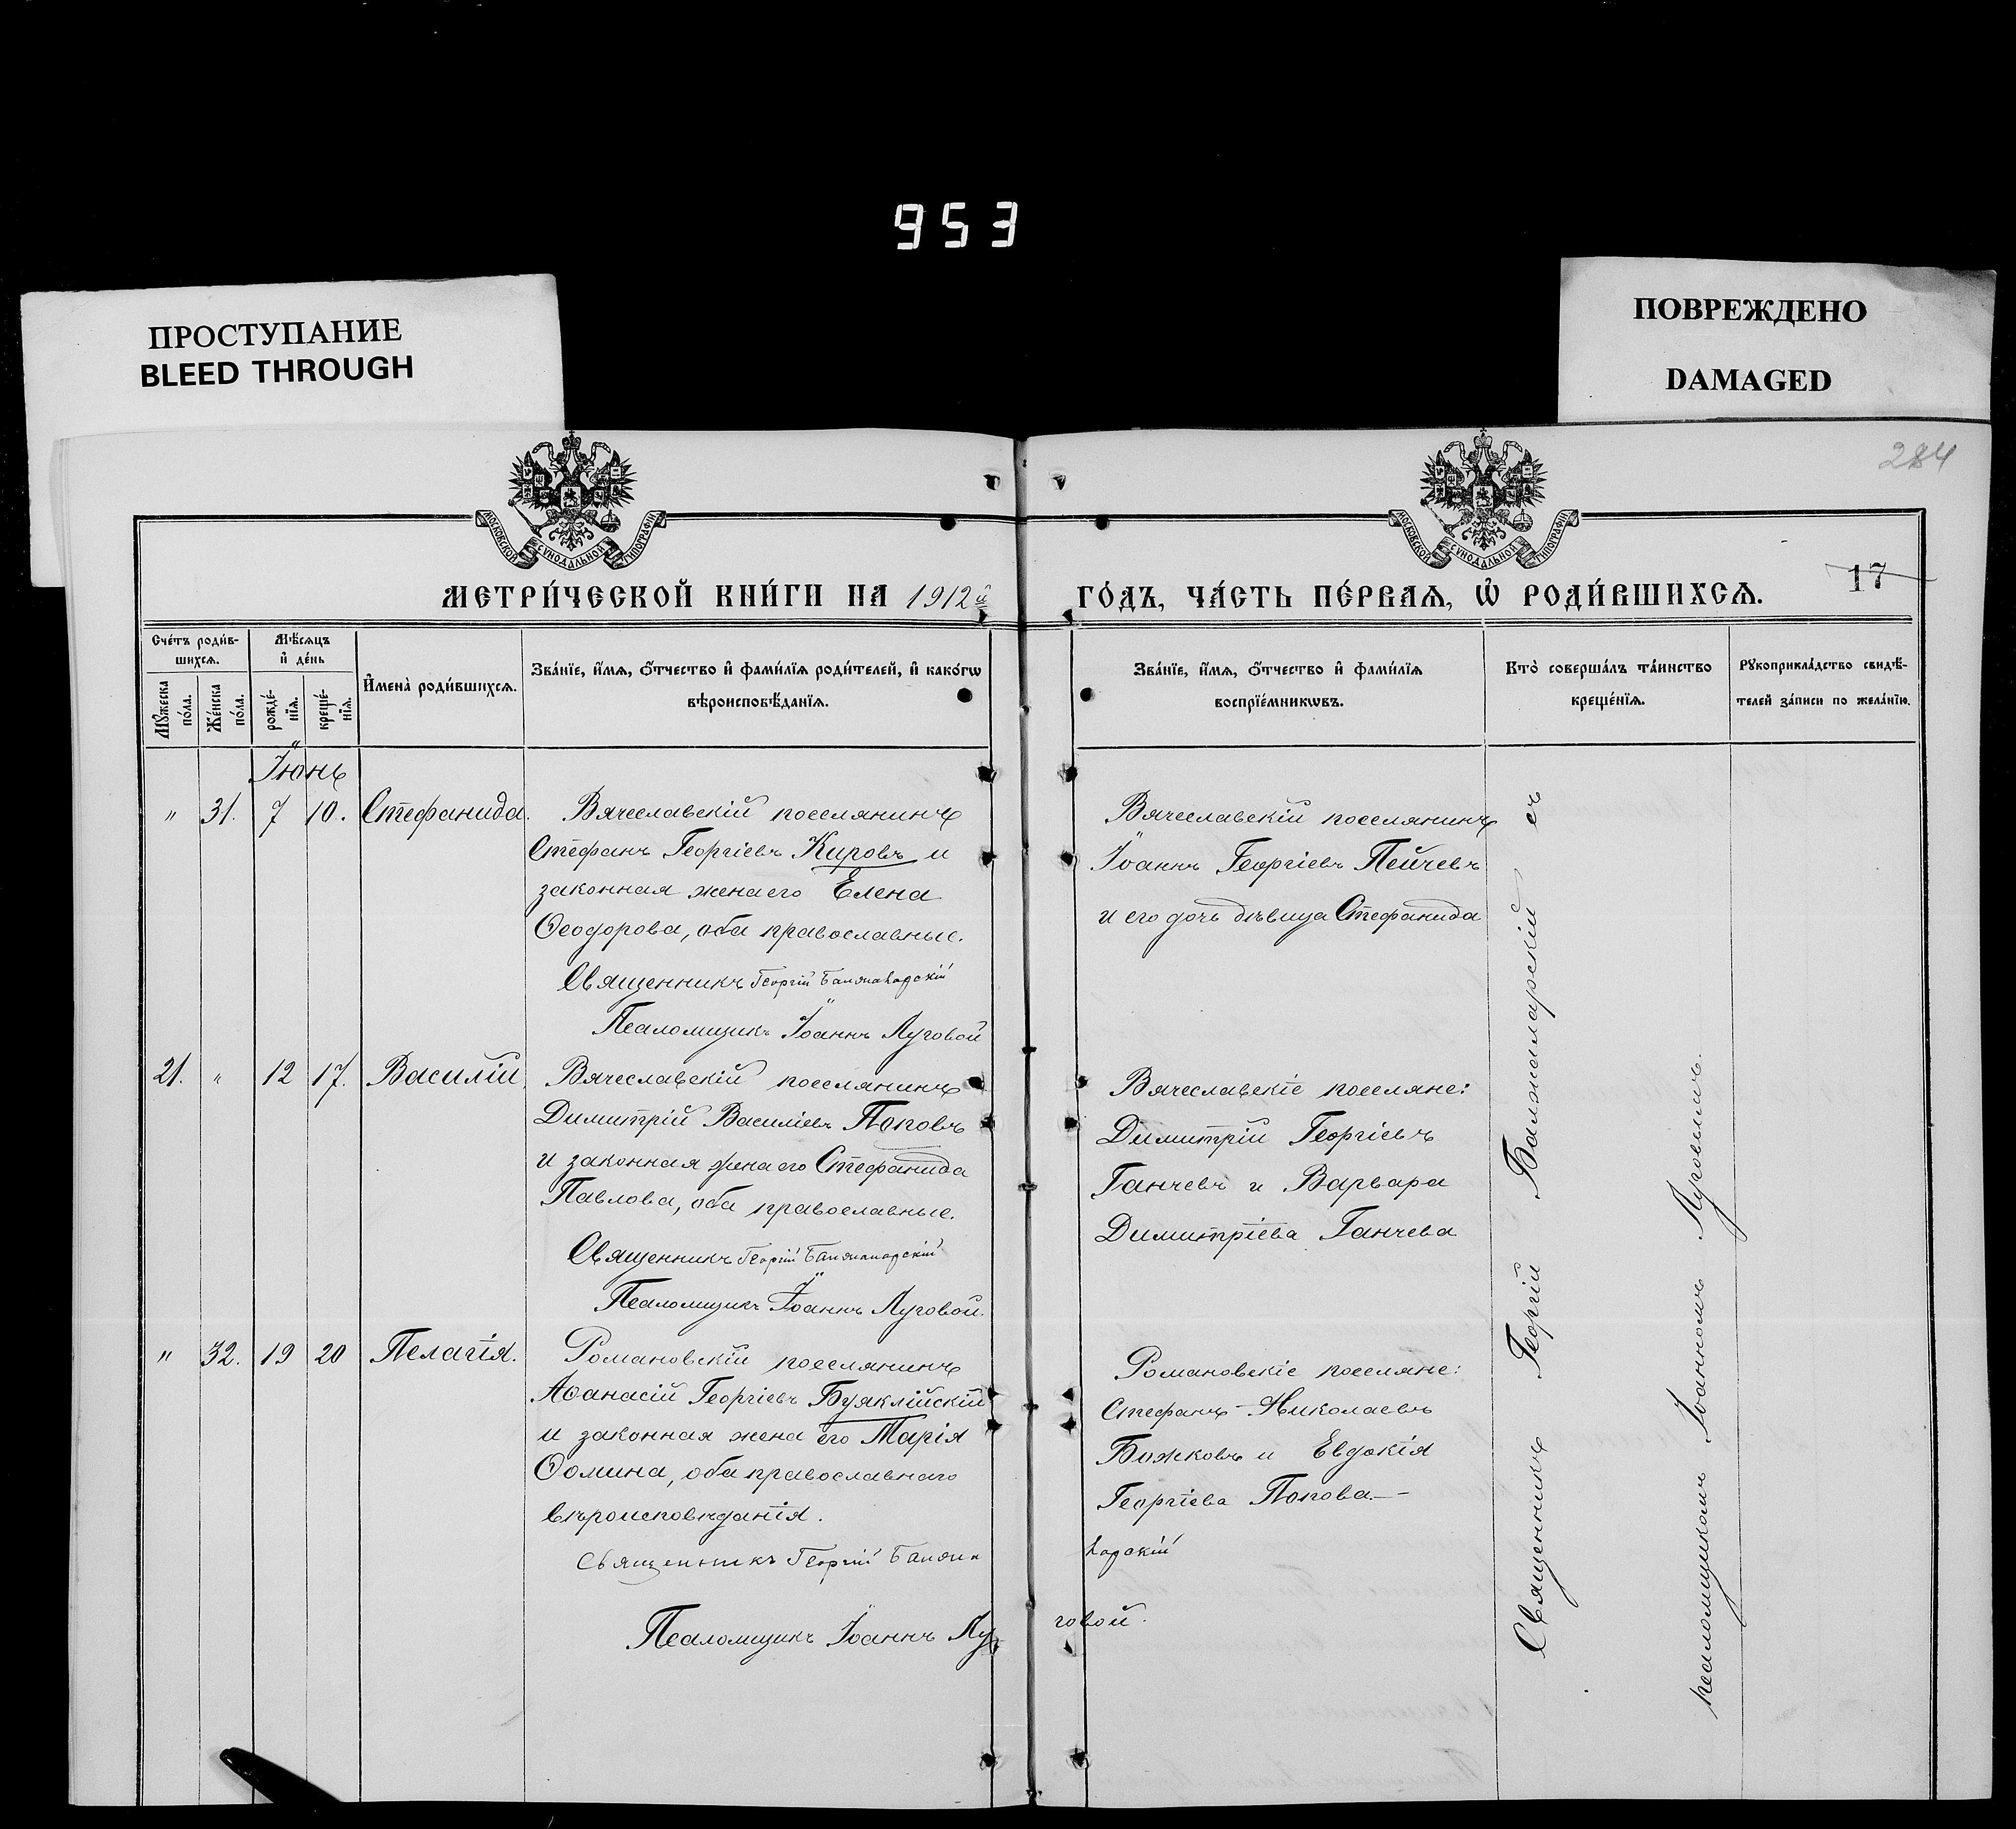 953
ПРОСТУПАНИЕ
BLEED THROUGH
ПОВРЕЖДЕНО
DAMAGED
284
МОСКОВСКОЙ СѴНОДАЛЬНОЙ ТИПОГРАФІИ
МОСКОВСКОЙ СѴНОДАЛЬНОЙ ТИПОГРАФІИ
МЕТРИ́ЧЕСКОЙ КНИ́ГИ НА 1912й
ГО́ДЪ, ЧА́СТЬ ПЕ́РВАѦ, Ѡ҆ РОДИ́ВШИХСѦ.
17
Сче́тъ роди́в-
шихсѧ.
Мѣ́сѧцъ
и҆ де́нь
Мꙋ́жеска
по́ла.
Же́нска
по́ла.
рожде́-
нїѧ.
креще́-
нїѧ.
И҆мена̀ роди́вшихсѧ.
Зва́нїе, и҆́мѧ, ѻ҆́тчество и҆ фами́лїѧ роди́телей, и҆ како́гѡ
вѣроисповѣ́данїѧ.
Зва́нїе, и҆́мѧ, ѻ҆́тчество и҆ фами́лїѧ
воспрїе́мникѡвъ.
Кто̀ соверша́лъ та́инство
креще́нїѧ.
Рꙋкоприкла́дство свидѣ́-
телей за́писи по жела́нїю.
Іюнь
" 31. 7 10. Стефанида.
Вячеславскій поселянинъ
Стефанъ Георгіевъ Кировъ и
законная жена его Елена
Ѳеодорова, оба православные.
Священникъ Георгій Балжаларскій
Псаломщикъ Іоаннъ Луговой
Вячеславскій поселянинъ
Іоаннъ Георгіевъ Пейчевъ
и его дочь дѣвица Стефанида
21. " 12 17. Василій
Вячеславскій поселянинъ
Димитрій Василіевъ Поповъ
и законная жена его Стефанида
Павлова, оба православные.
Священникъ Георгій Балжаларскій
Псаломщикъ Іоаннъ Луговой.
Вячеславскіе поселяне:
Димитрій Георгіевъ
Ганчевъ и Варвара
Димитріева Ганчева
" 32. 19 20 Пелагія.
Романовскій поселянинъ
Аѳанасій Георгіевъ Буяклійскій
и законная жена его Марія
Ѳомина, оба православнаго
вѣроисповѣданія.
Священникъ Георгій Балжаларскій
Псаломщикъ Іоаннъ Луговой.
Романовскіе поселяне:
Стефанъ Николаевъ
Божковъ и Евдокія
Георгіева Попова.
Священникъ Георгій Балжаларскій съ
псаломщикомъ Іоанномъ Луговымъ.